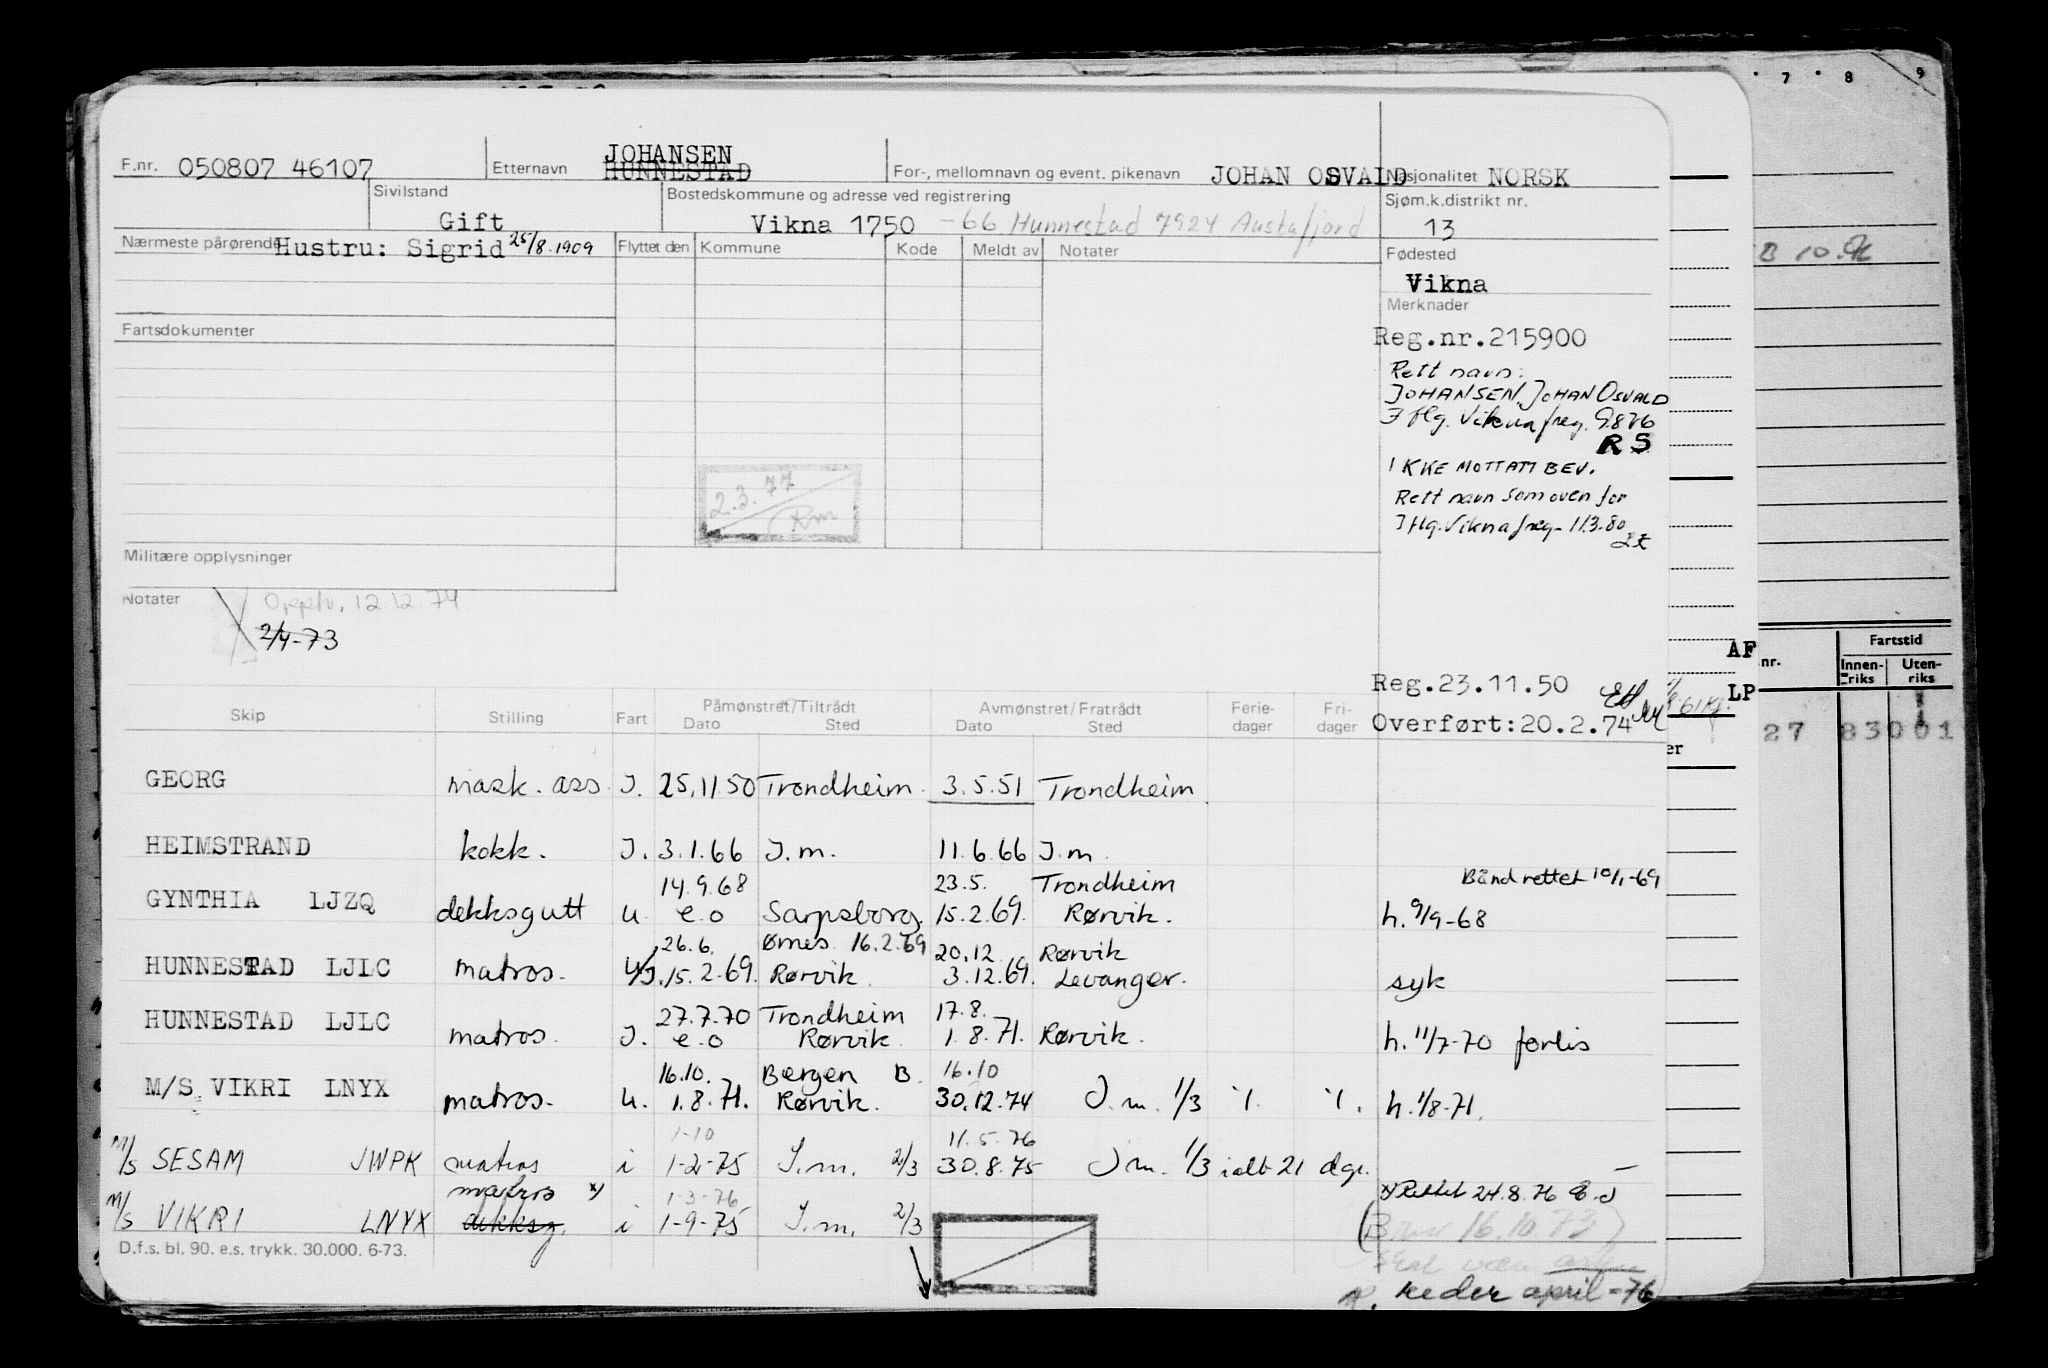 7 8 9
JOHANSEN
F.nr. 050807 46107 Etternavn HUNNESTAD For-, mellomnavn og event. pikenavn JOHAN OSVALD Nasjonalitet NORSK
Sivilstand Bostedskommune og adresse ved registrering Sjøm.k.distrikt nr.
Gift Vikna 1750 - 66 Hunnestad 7924 Austafjord 13
Nærmeste pårørende Hustru: Sigrid 25/8.1909 Flyttet den Kommune Kode Meldt av Notater Fødested
Vikna
Merknader
Fartsdokumenter Reg.nr.215900
Rett navn:
JOHANSEN, JOHAN OSVALD
I flg. Vikna freg. 9.8.76
RS
IKKE MOTTATT BEV.
2.3.77 Rett navn som oven for
Rm I flg. Vikna freg. 11.3.80
Militære opplysninger
Notater 12.12.74
2/4-73
AF
nr. Fartstid
Innen-riks Uten-riks
Reg.23.11.50 LP
Skip Stilling Fart Påmønstret/Tiltrådt Avmønstret/Fratrådt Ferie-dager Fri-dager Overført:20.2.74
Dato Sted Dato Sted
27 83001
er
GEORG mask. ass. I. 25.11.50 Trondheim. 3.5.51 Trondheim
HEIMSTRAND kokk. I. 3.1.66 I.m. 11.6.66 I.m.
14.9.68 23.5. Trondheim Bånd rettet 10/1-69
GYNTHIA LJZQ dekksgutt u. e.o Sarpsborg. 15.2.69. Rørvik. h. 9/9-68
26.6. Ørnes 16.2.69 20.12 Rørvik
HUNNESTAD LJLC matros. U/I. 15.2.69. Rørvik. 3.12.69. Levanger. syk
27.7.70 Trondheim 17.8.
HUNNESTAD LJLC matros. I. e.o Rørvik 1.8.71. Rørvik. h. 11/7-70 forlis
16.10. Bergen B. 16.10
M/S VIKRI LNYX matros. U. 1.8.71. Rørvik. 30.12.74 I.m. 1/3 %. %. h. 1/8-71.
1-10 11.5.76
M/S SESAM JWPK matros i 1-2-75 I.m. 2/3 30.8.75 I m. 1/3 ialt 21 dgr. —
matros x) 1-3-76 x) Rettet 24.8.76
M/S VIKRI LNYX dekksg. i 1-9-75 I.m. 2/3 (Brev 16.10.73)
D.f.s. bl. 90. e.s. trykk. 30.000. 6-73.
reder april-76